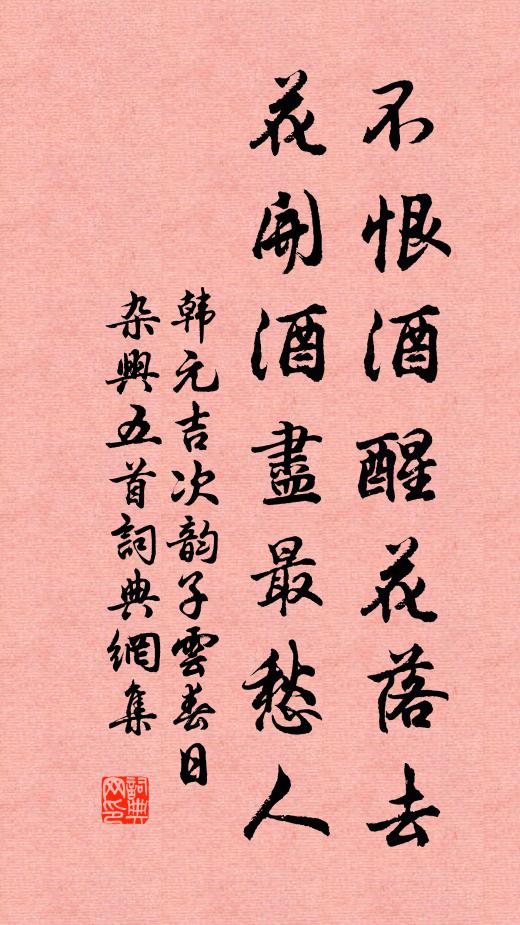 不恨酒醒花落去
花開酒盡最愁人
韩元吉次韵子雲春日
杂興五首詞典網集
詞典網印